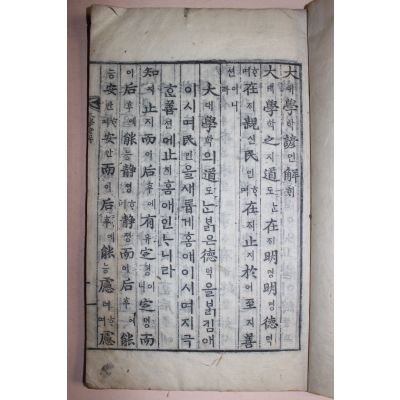 大대學학諺언解ᄒᆡ
大대學학之지道도ᄂᆞᆫ在ᄌᆡ明명明명德덕ᄒᆞ며
在ᄌᆡ親신民민ᄒᆞ며在ᄌᆡ止지於어至지善
션이니라
大대學학의道도ᄂᆞᆫ붉은德덕을붉김애
이시며民민을새롭게홈애이시며지극
ᄒᆞᆫ善션에止지홈애인ᄂᆞ니라
知지止지而이后후에有유定뎡이니定뎡而
이后후에能능靜졍ᄒᆞ며靜졍而이后후에能
능安안ᄒᆞ며安안而이后후에能능慮려ᄒᆞ며慮